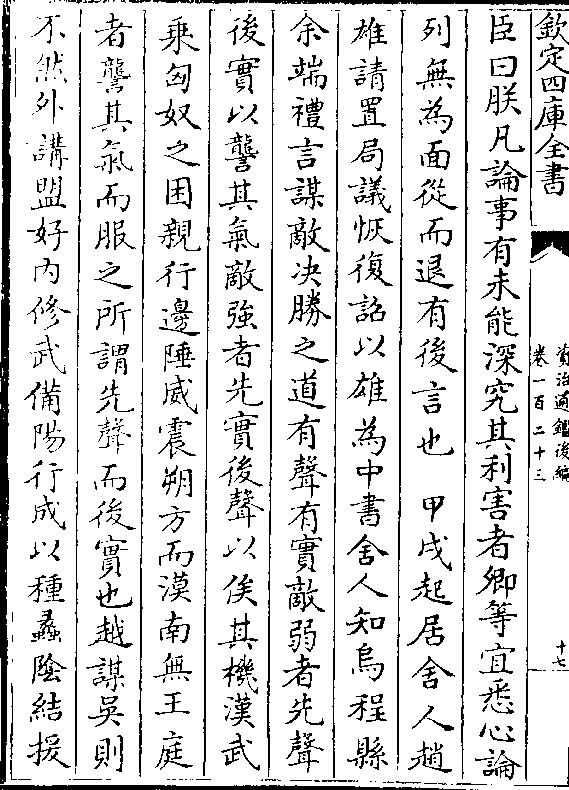 欽定四庫全書
資治通鑑後編
卷一百二十三
十七
臣曰朕凡論事有未能深究其利害者卿等宜悉心論
列無為面從而退有後言也　甲戌起居舍人趙
雄請置局議恢復詔以雄為中書舍人知烏程縣
余端禮言謀敵决勝之道有聲有實敵弱者先聲
後實以讋其氣敵強者先實後聲以俟其機漢武
乗匈奴之困親行邊陲威震朔方而漠南無王庭
者讋其氣而服之所謂先聲而後實也越謀吳則
不然外講盟好内修武備陽行成以種蠡陰結援